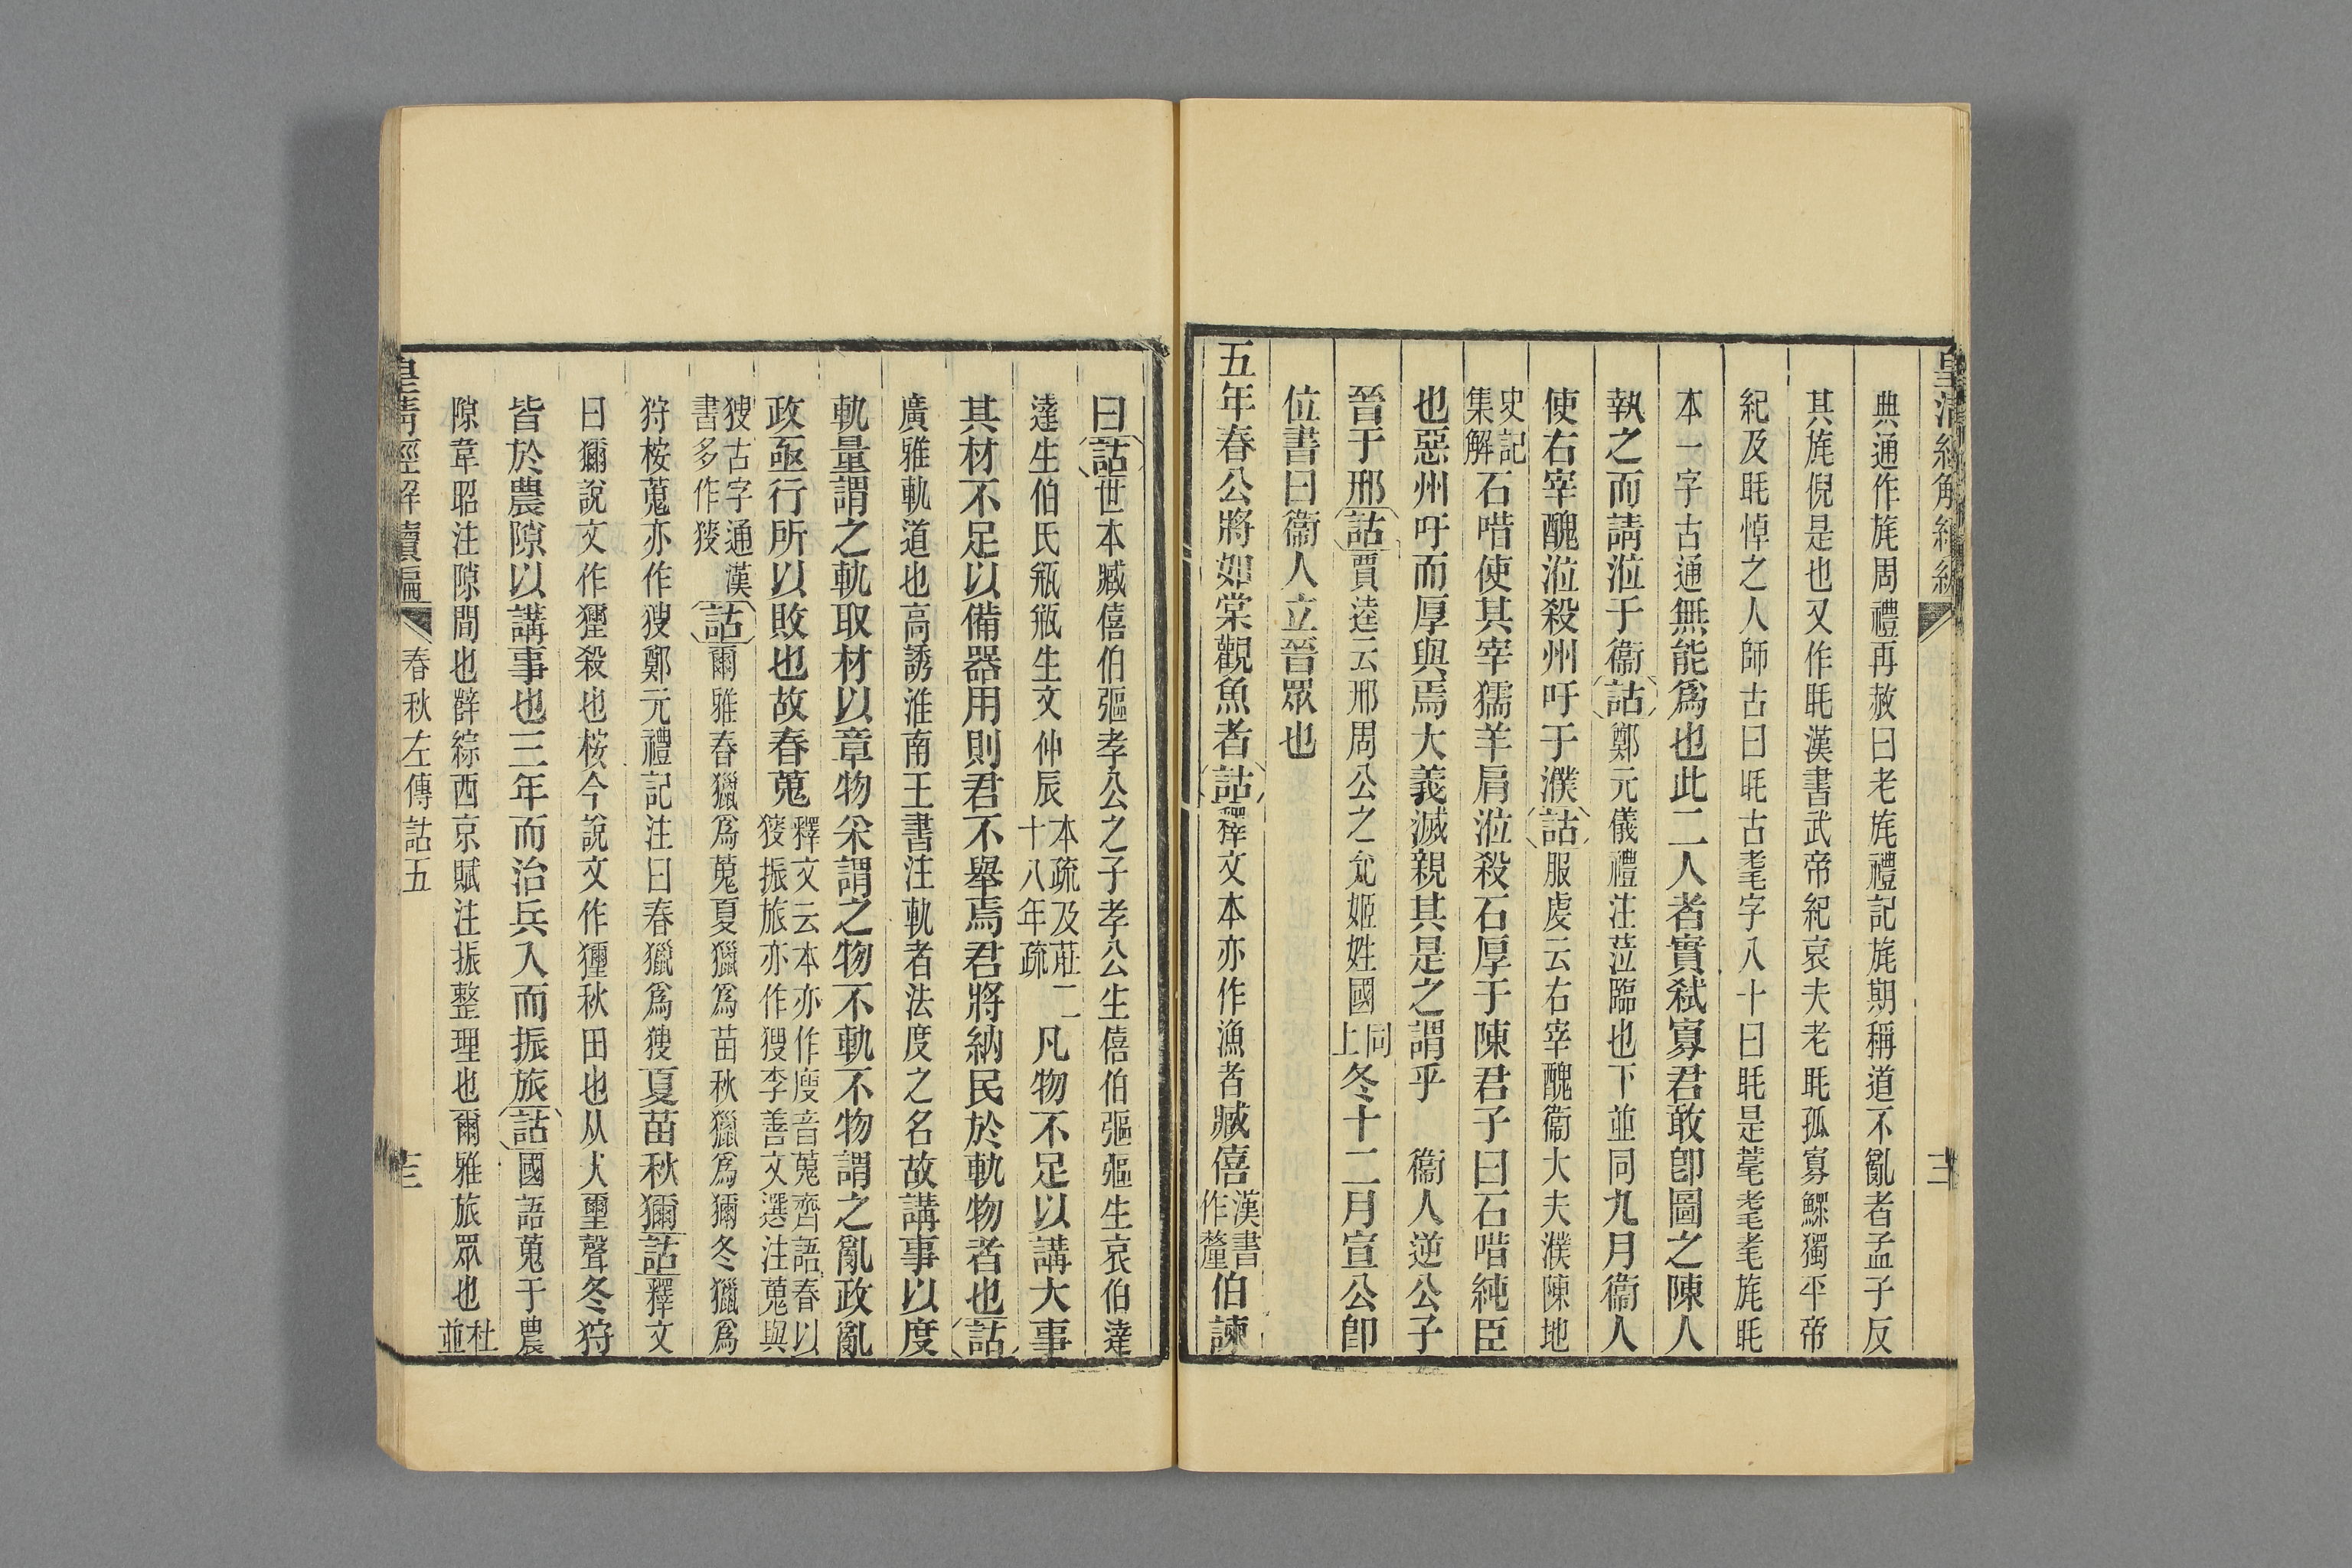 典通作旄周禮再赦曰老旄禮記旄期稱道不亂者孟子反
其旄倪是也又作眊漢書武帝紀哀夫老眊孤寡鰥獨平帝
紀及眊悼之人師古曰眊古耄字八十曰眊是薹耄耄旄眊
本一字古通無能爲也此二人者實弒寡君敢卽圖之陳人
執之而請涖于衞詁鄭元儀禮注蒞臨也下並同九月衞人
使右宰醜涖殺州吁于濮詁服虔云右宰醜衞大夫濮陳地
史記集解石碏使其宰獳羊肩涖殺石厚于陳君子曰石碏純臣
也惡州吁而厚與焉大義滅親其是之謂乎　衞人逆公子
晉于邢詁賈逵云邢周公之允姬姓國同上冬十二月宣公卽
位書曰衞人立晉眾也
五年春公將如棠觀魚者詁釋文本亦作漁者臧僖漢書作釐伯諫
曰詁世本臧僖伯彄孝公之子孝公生僖伯彄彄生哀伯達
達生伯氏瓶瓶生文仲辰本疏及莊二十八年疏凡物不足以講大事
其材不足以備器用則君不舉焉君將納民於軌物者也詁
廣雅軌道也高誘淮南王書注軌者法度之名故講事以度
軌量謂之軌取材以章物采謂之物不軌不物謂之亂政亂
政亟行所以敗也故春蒐釋文云本亦作廋音蒐齊語春以獀振旅亦作獀李善文選注蒐與
獀古字通漢書多作獀詁爾雅春獵爲蒐夏獵爲苗秋獵爲獮冬獵爲
狩桉蒐亦作獀鄭元禮記注曰春獵爲獀夏苗秋獮詁釋文
曰獮說文作𤣗殺也桉今說文作𤣗秋田也从犬璽聲冬狩
皆於農隙以講事也三年而治兵入而振旅詁國語蒐于農
隙韋昭注隙間也薛綜西京賦注振整理也爾雅旅眾也杜並
皇清經解續編
春秋左傳詁五
三